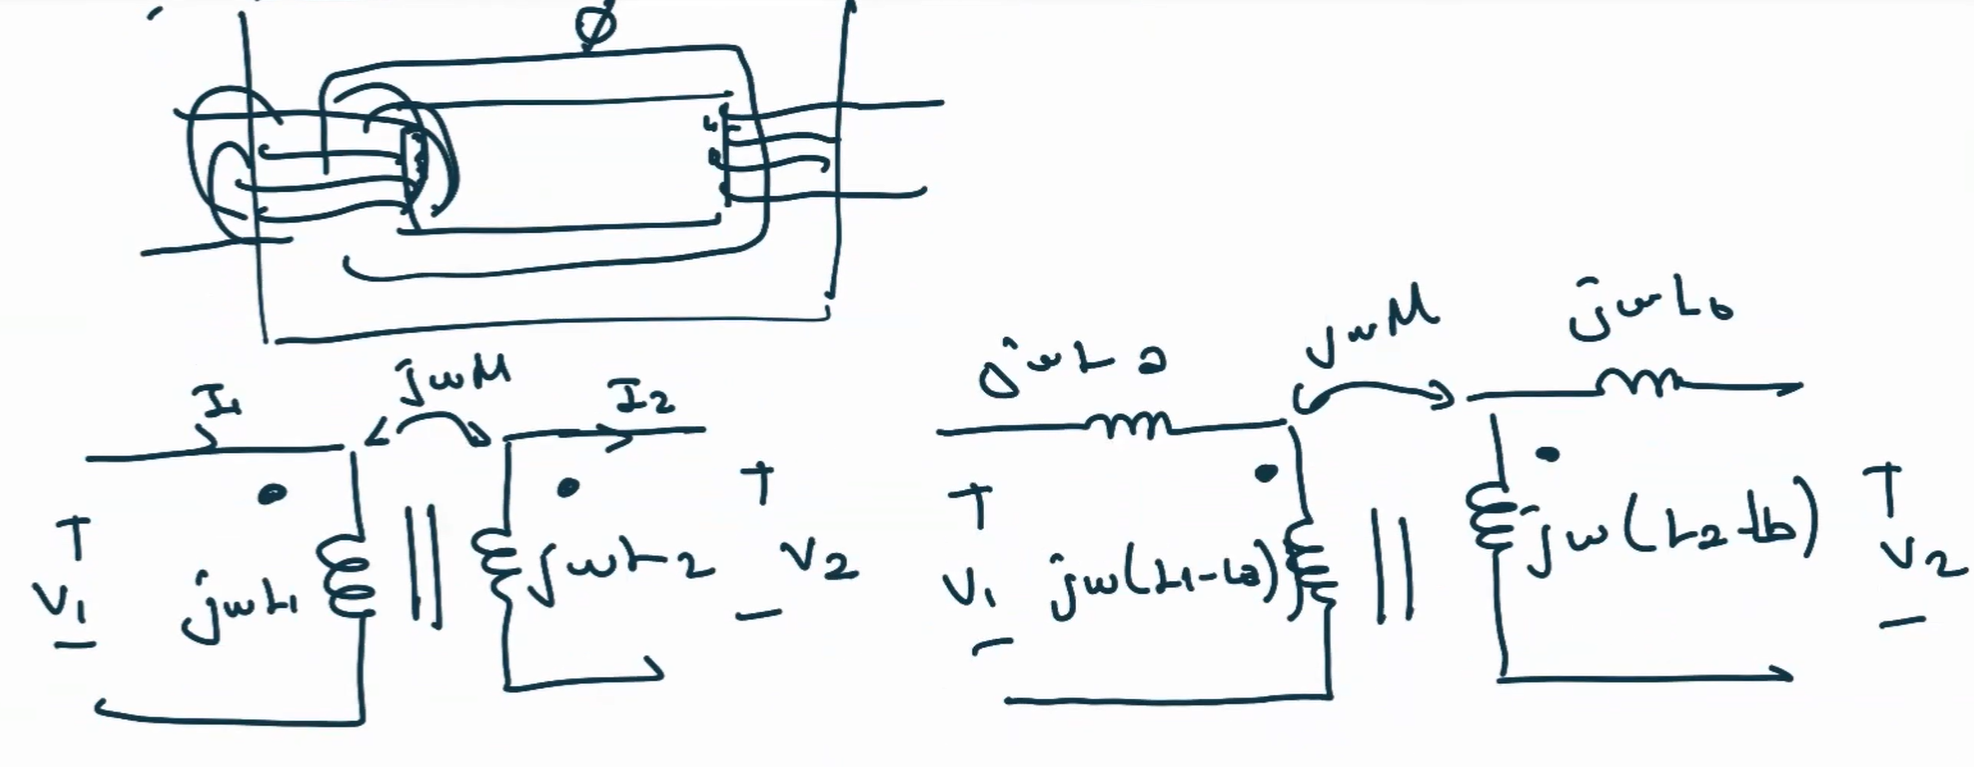 φ
I₁
jωM
I₂
V₁
jωL₁
jωL₂
V₂
jωLa
jωM
jωLb
V₁
jω(L₁-La)
jω(L₂-Lb)
V₂